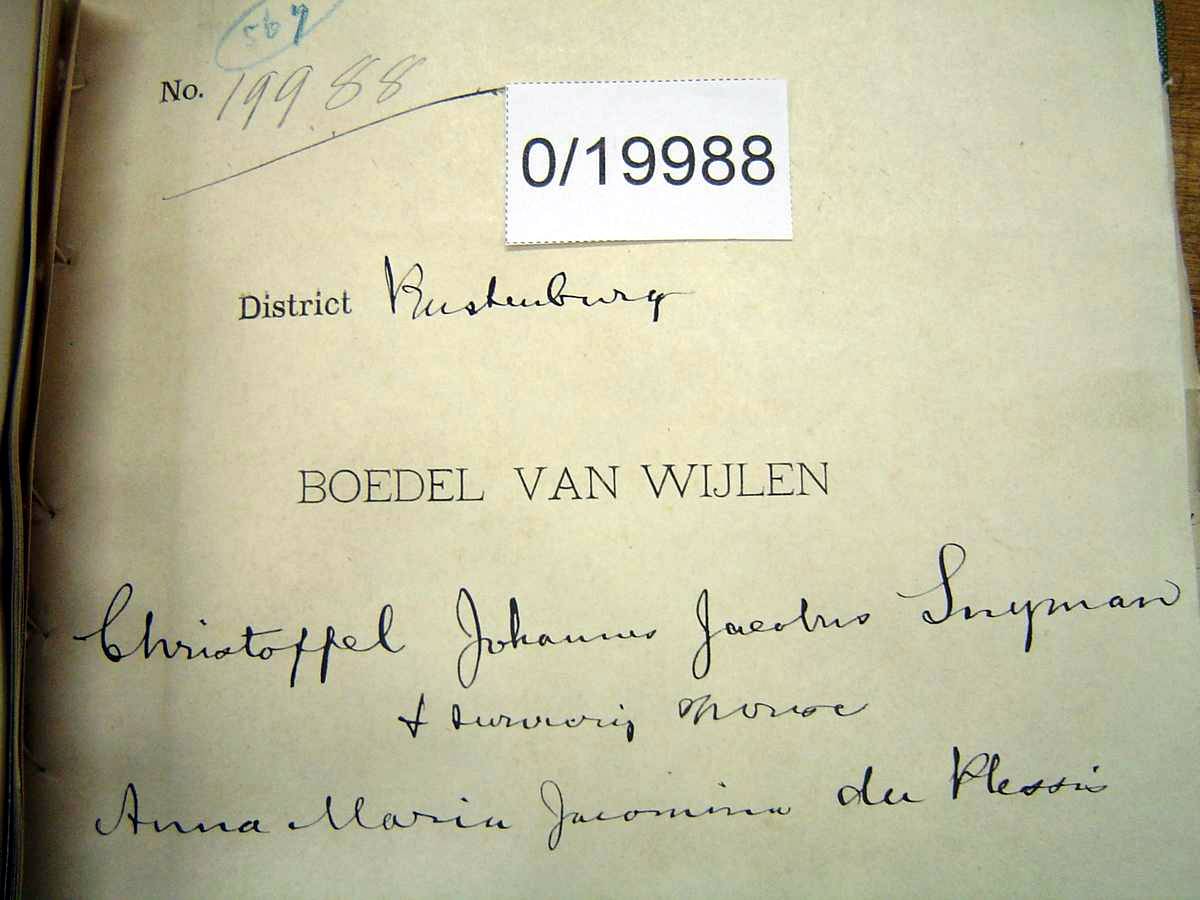 567
No. 19988
0/19988
District Rustenburg
BOEDEL VAN WIJLEN
Christoffel Johannes Jacobus Snyman
& surviving spouse
Anna Maria Jacomina du Plessis